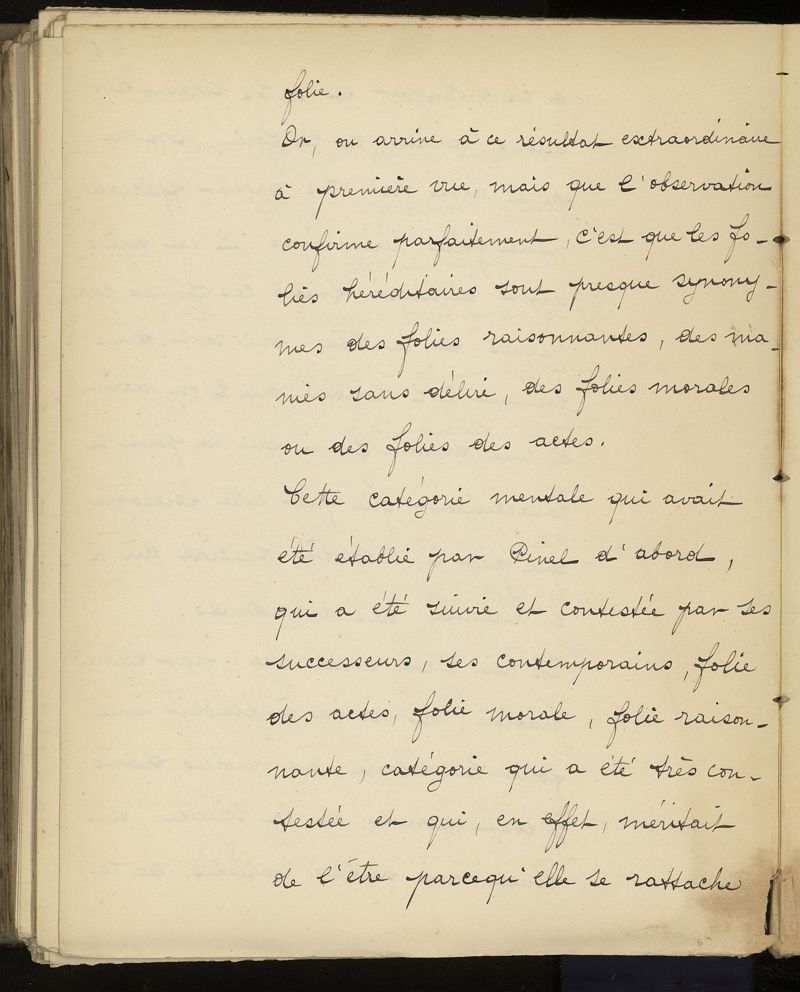 folie.
Or, on arrive à ce résultat extraordinaire
à première vue, mais que l'observation
confirme parfaitement, c'est que les fo-
lies héréditaires sont presque synony-
mes des folies raisonnantes, des ma-
nies sans délire, des folies morales
ou des folies des actes.
Cette catégorie mentale qui avait
été établie par Pinel d'abord,
qui a été suivie et contestée par ses
successeurs, ses contemporains, folie
des actes, folie morale, folie raison-
nante, catégorie qui a été très con-
testée et qui, en effet, méritait
de l'être parcequ'elle se rattache